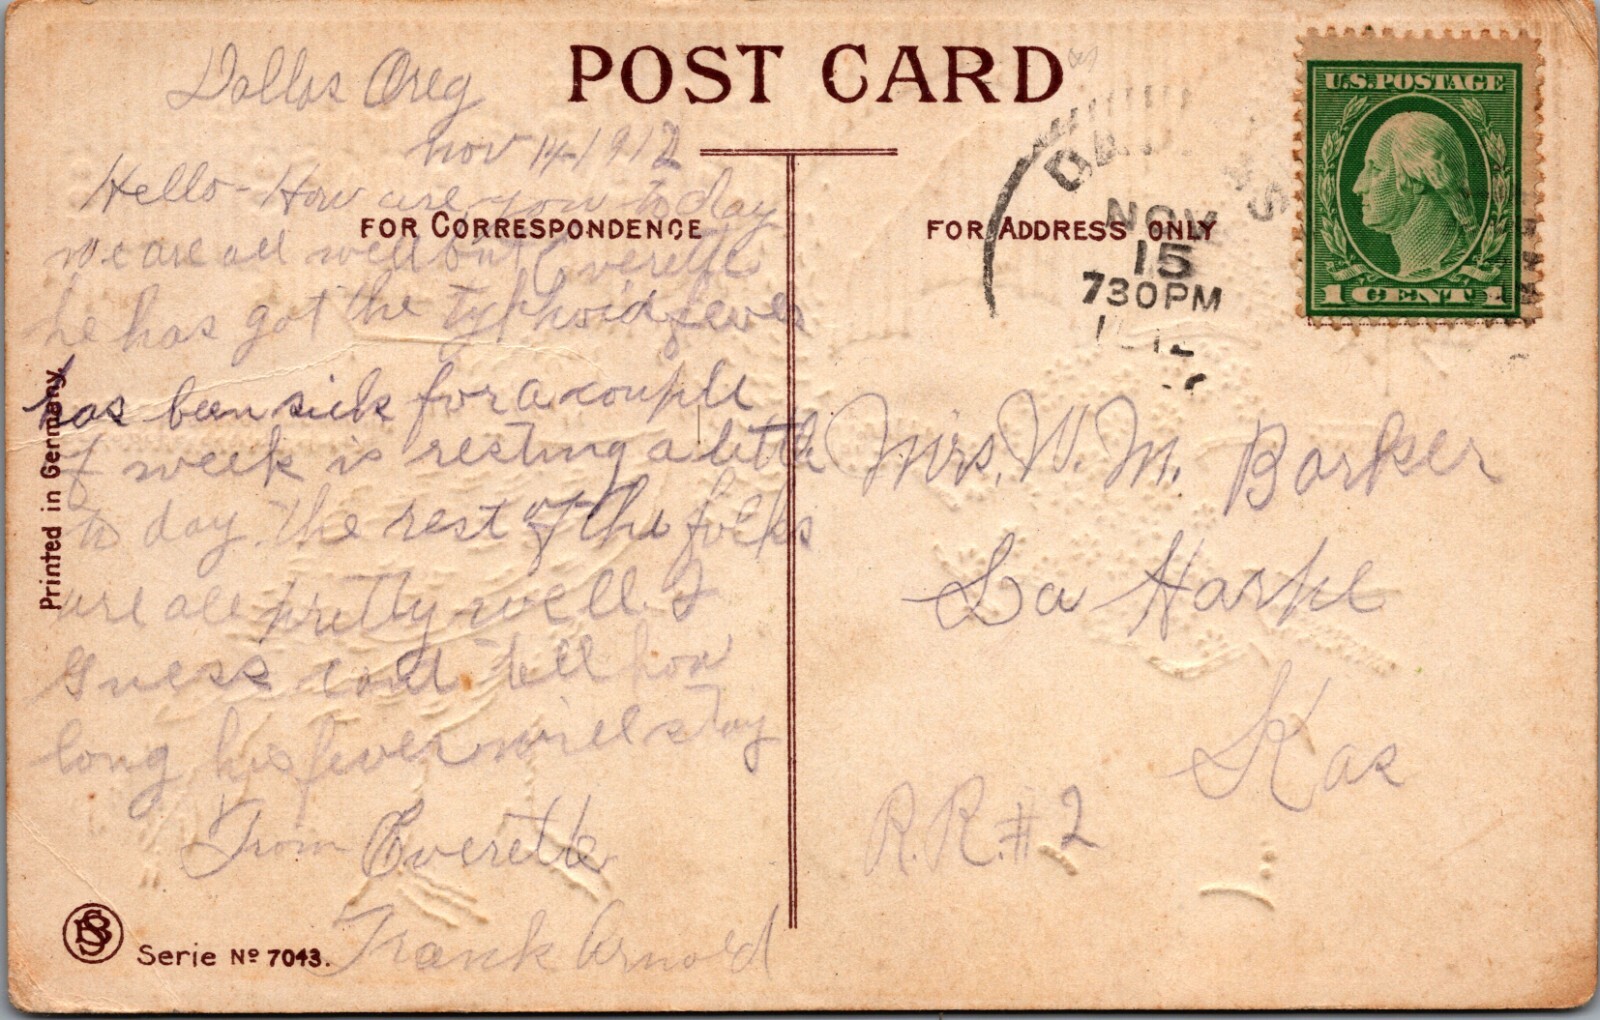 POST CARD
Dallas Oreg
nov 14-1912
Hello - How are you to day
we are all well but Everette
he has got the typhoid fever
has been sick for a couple
of week is resting a little
to day. the rest of the folks
are all pretty well. I
Guess cant tell how
long his fever will stay
From Everette
Frank Arnold
FOR CORRESPONDENCE
FOR ADDRESS ONLY
Printed in Germany.
Serie Nº 7043.
U.S. POSTAGE
1 CENT 1
NOV
15
730PM
Mrs. W. M. Barker
La Harpe
Kas
R.R. # 2